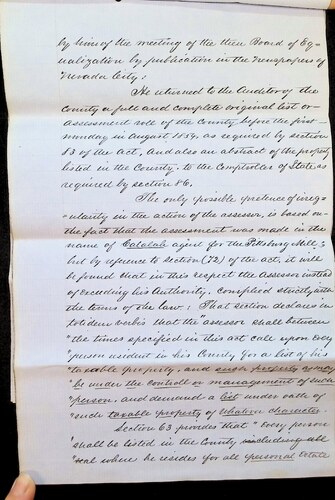 by him of the meeting of the then Board of Eq-
ualization by publication in the Newspapers of
Nevada City;
He returned to the Auditor of the
County a full and complete original list or
assessment role of the County before the first
monday in August 1859, as required by section
83 of the Act, And also an abstract of the property
listed in the County, to the Comptroller of State, as
required by section 86.
The only possible pretence of irreg-
"ularity in the action of the assessor, is based on
the fact that the assessment was made in the
name of agent for the Pittsburg Mill;
but by reference to section (72) of the act, it will
be found that in this respect the Assessor instead
of exceeding his Authority, complied strictly with
the terms of the law; That section declares in
totidem verbis that the "assessor shall between
"the times specified in this act call upon every
"person resident in his County for a list of his
"taxable property, and such property as may
"be under the controll or management of such
"person, and demand a list under oath of
"such taxable property of whatever character
Section 63 provides that "every person
"shall be listed in the County
where he resides for all personal Estate